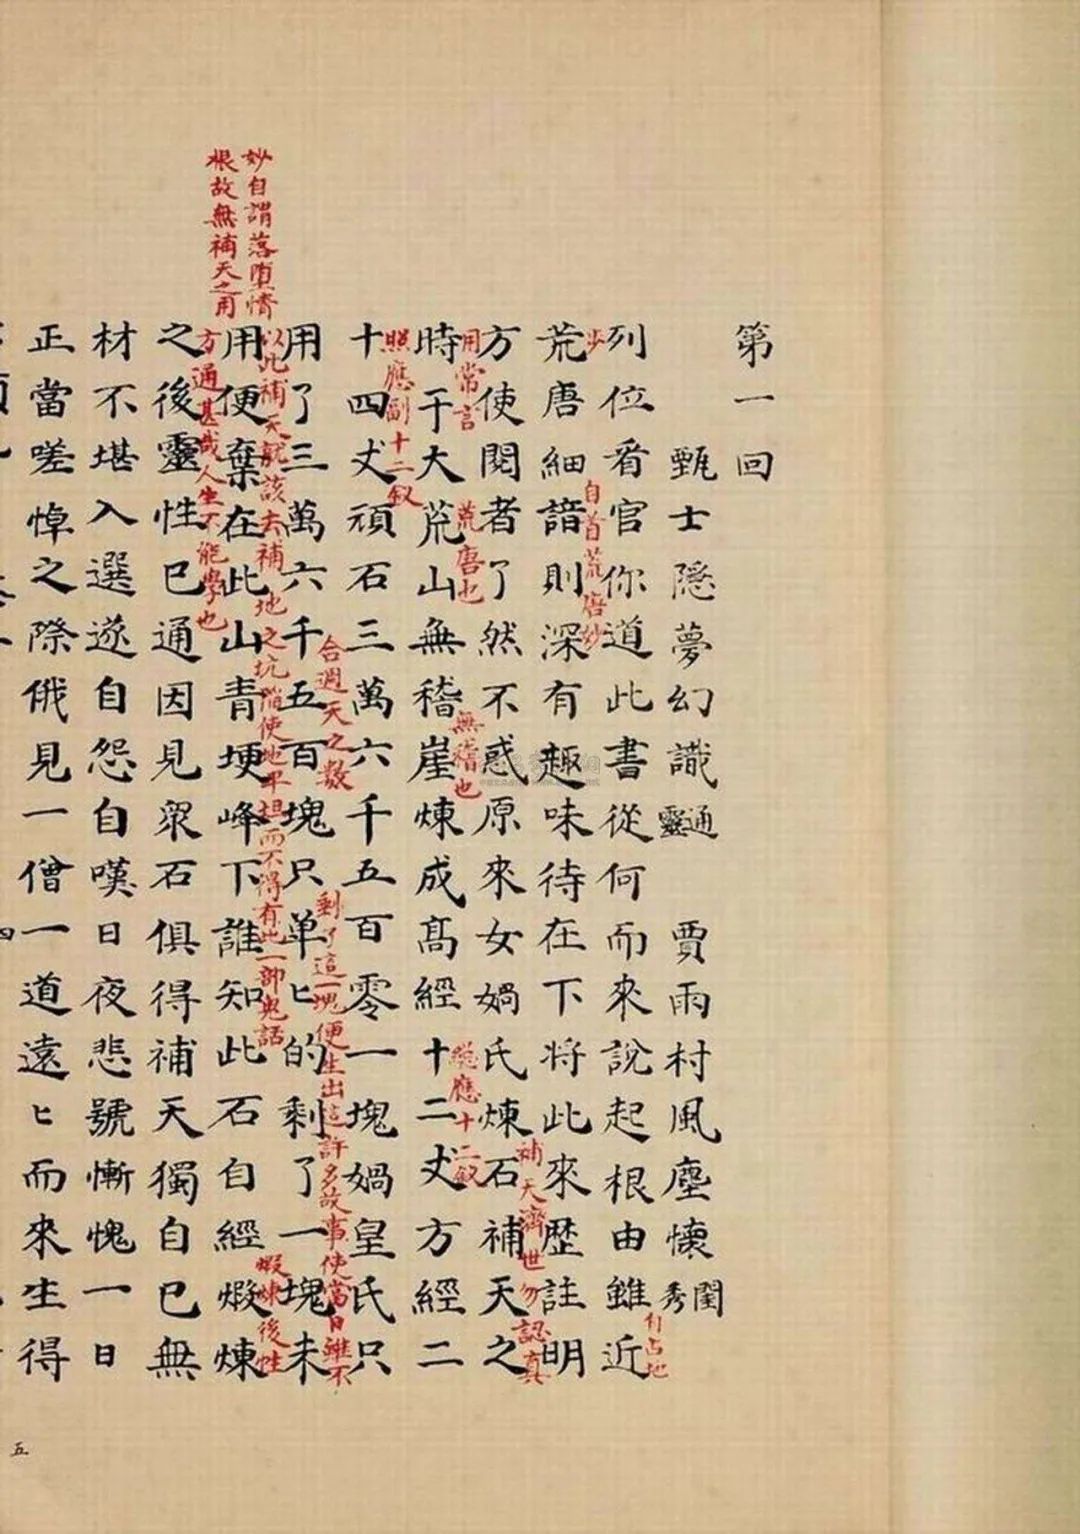 第一回
甄士隱夢幻識通靈 賈雨村風塵懷閨秀
列位看官你道此書從何而來說起根由雖近
自占地
步
荒唐細諳則深有趣味待在下將此來歷註明
自首荒唐妙
方使閱者了然不惑原來女媧氏煉石補天之
補天濟世勿認真
用常言
時于大荒山無稽崖煉成高經十二丈方經二
荒唐也
無稽也
總應十二釵
十四丈頑石三萬六千五百零一塊媧皇氏只
照應副十二釵
用了三萬六千五百塊只單匕的剩了一塊未
合週天之數
剩了這一塊便生出這許多故事使當日雖不
以此補天就該去補地之坑陷使地平坦而不得有此一部鬼話
用便棄在此山青埂峰下誰知此石自經煅煉
煅煉後性
方通甚哉人生不能學也
妙自謂落堕情
根故無補天之用
之後靈性已通因見衆石俱得補天獨自已無
材不堪入選遂自怨自嘆日夜悲號慚愧一日
正當嗟悼之際俄見一僧一道遠匕而來生得
五